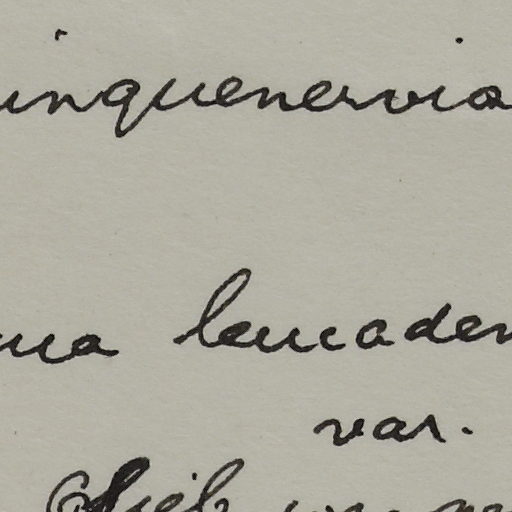 inquenervia
uca leucaden
var.